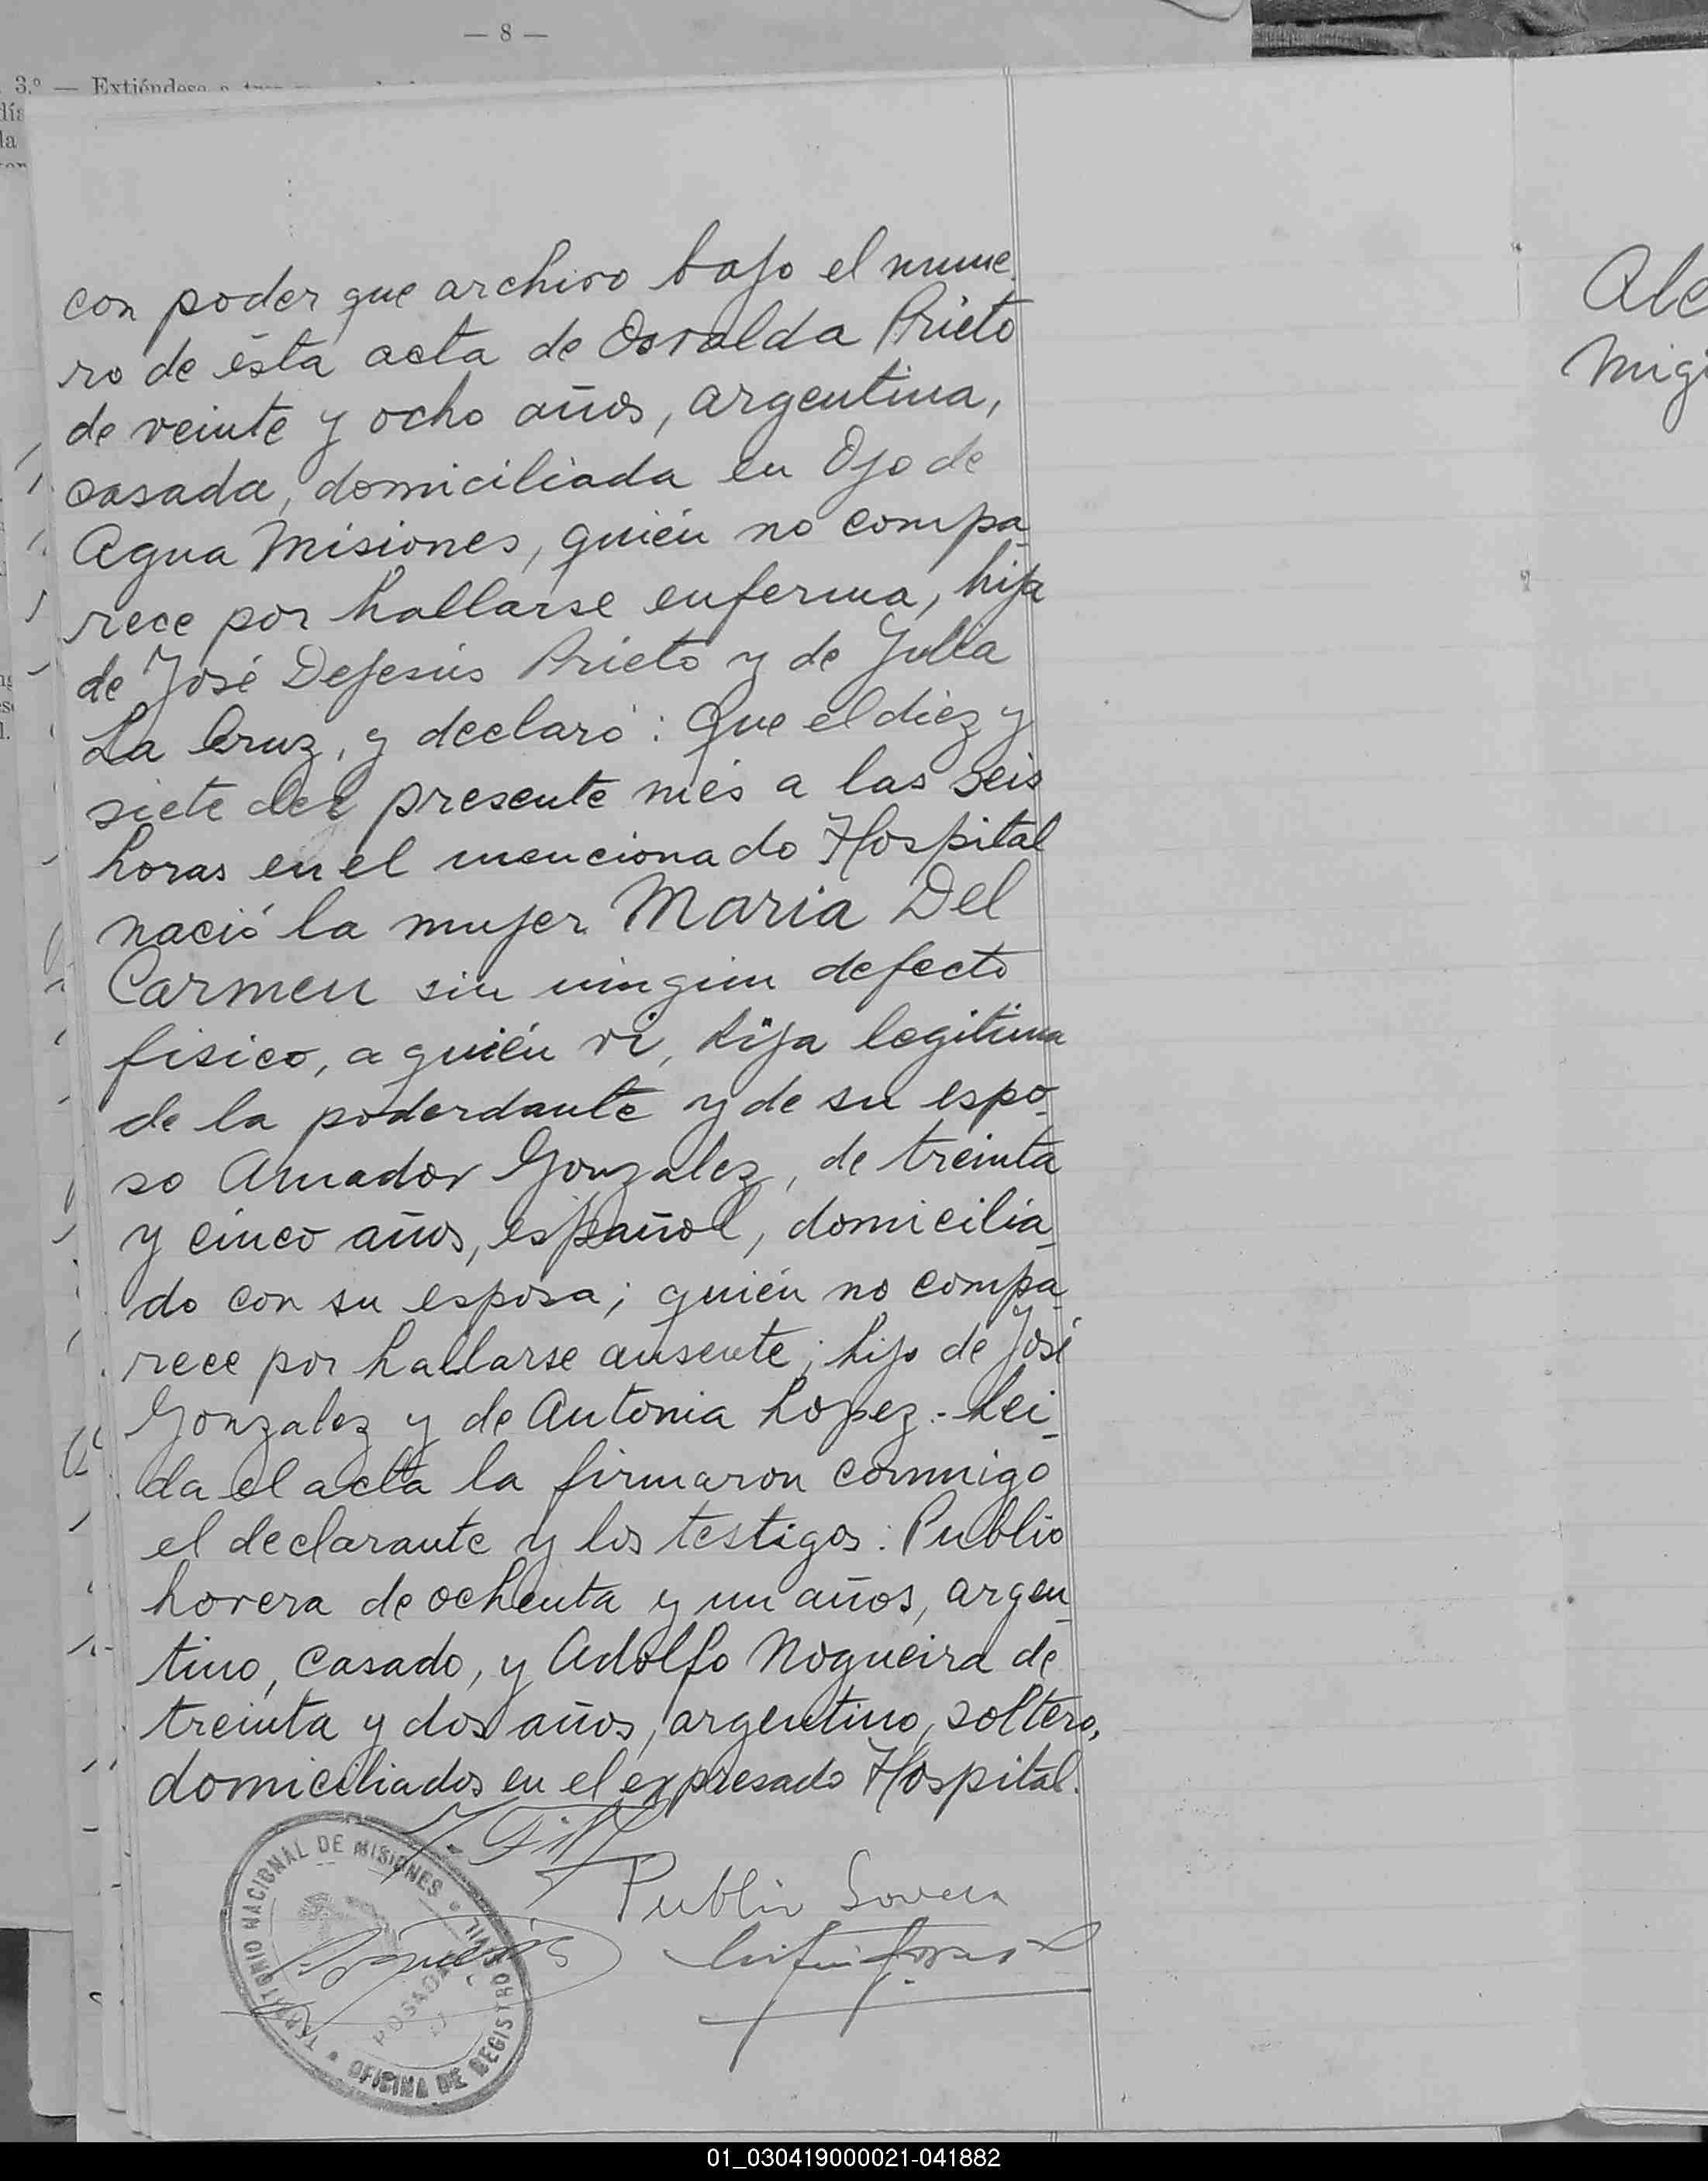 — 8 —
3.º — Extiéndese a
día
la
con poder que archivo bajo el nume
ro de ésta acta de Osvalda Prieto
de veinte y ocho años, argentina,
casada, domiciliada en Ojo de
Agua Misiones, quién no compa
rece por hallarse enferma, hija
de José Dejesús Prieto y de Julia
La Cruz, y declaró: Que el diez y
siete del presente més a las seis
horas en el mencionado Hospital
nació la mujer Maria Del
Carmen sin ningun defecto
fisico, a quién vi, hija legitima
de la poderdante y de su espo-
so Amador Gonzalez, de treinta
y cinco años, español, domicilia_
do con su esposa; quién no compa_
rece por hallarse ausente; hijo de José
Gonzalez y de Antonia Lopez.- Lei_
da el acta la firmaron conmigo
el declarante y los testigos: Publio
Lovera de ochenta y un años, argen_
tino, casado, y Adolfo Nogueira de
treinta y dos años, argentino, soltero,
domiciliados en el expresado Hospital.
Publio Lovera
TERRITORIO NACIONAL DE MISIONES * OFICINA DE REGISTRO CIVIL *
POSADAS
Ale
Migu
01_030419000021-041882